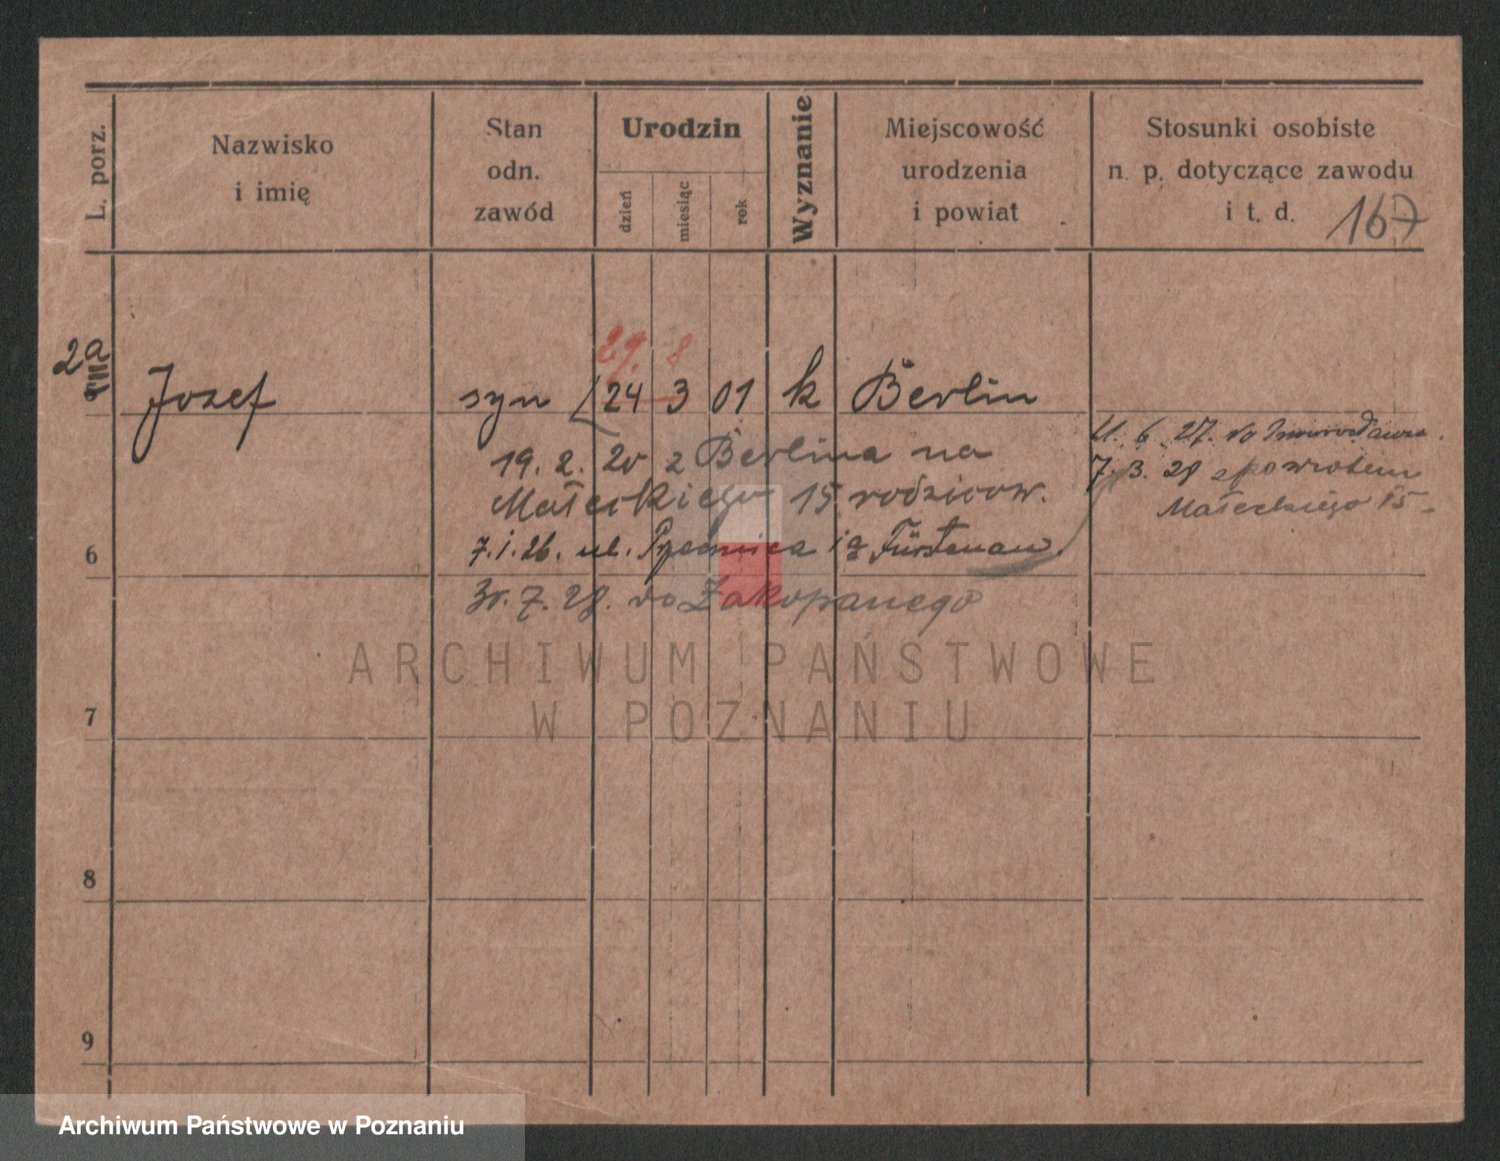 L. porz.
Nazwisko
i imię
Stan
odn.
zawód
Urodzin
dzień
miesiąc
rok
Wyznanie
Miejscowość
urodzenia
i powiat
Stosunki osobiste
n. p. dotyczące zawodu
i t. d. 167
29. 8
2a
Jozef syn 24 3 01 k Berlin
11. 6. 27. do Inowrocławia.
19. 2. 20 z Berlina na
7. 3. 28 z powrotem
Małeckiego 15 rodzicow.
Małeckiego 15
7. 1. 26. ul. Fürstenau.
6
30. 7. 28. do Zakopanego
ARCHIWUM PAŃSTWOWE
W POZNANIU
7
8
9
Archiwum Państwowe w Poznaniu